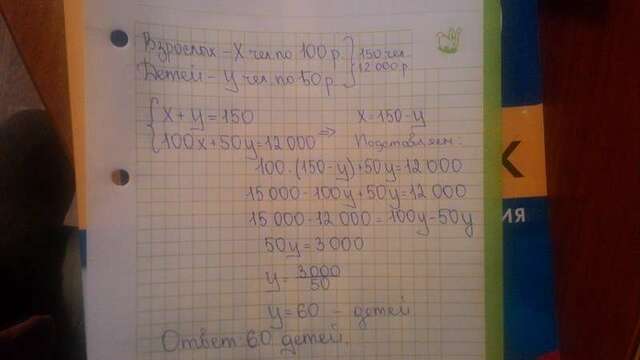 Взрослых – X чел. по 100 р. } 150 чел.
Детей – y чел. по 50 р. } 12 000 р.
{ x + y = 150
100x + 50y = 12 000 => x = 150 - y
Подставляем:
100 · (150 - y) + 50y = 12 000
15 000 - 100y + 50y = 12 000
15 000 - 12 000 = 100y - 50y
50y = 3 000
y = 3 000 / 50
y = 60 - детей
Ответ: 60 детей.
К
ИЯ